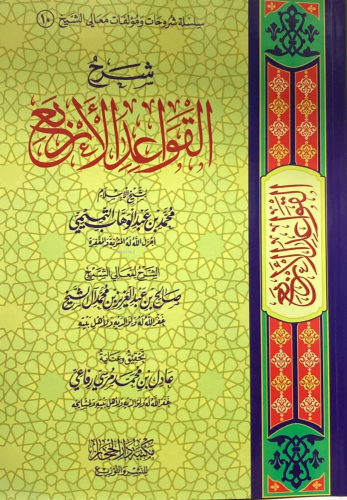 سلسلة شروحات ومؤلفات معالي الشيخ (١٠)
شرح
القواعد الأربع
لشيخ الإسلام
محمد بن عبد الوهاب التميمي
أجزل الله له المثوبة والمغفرة
الشرح لمعالي الشيخ
صالح بن عبد العزيز بن محمد آل الشيخ
غفر الله له ولوالديه ولأهل بيته
بتحقيق وعناية
عادل بن محمد مرسي رفاعي
غفر الله له ولوالديه ولأهل بيته ومشايخه
مكتبة دار الحجاز
للنشر والتوزيع
القواعد الأربع